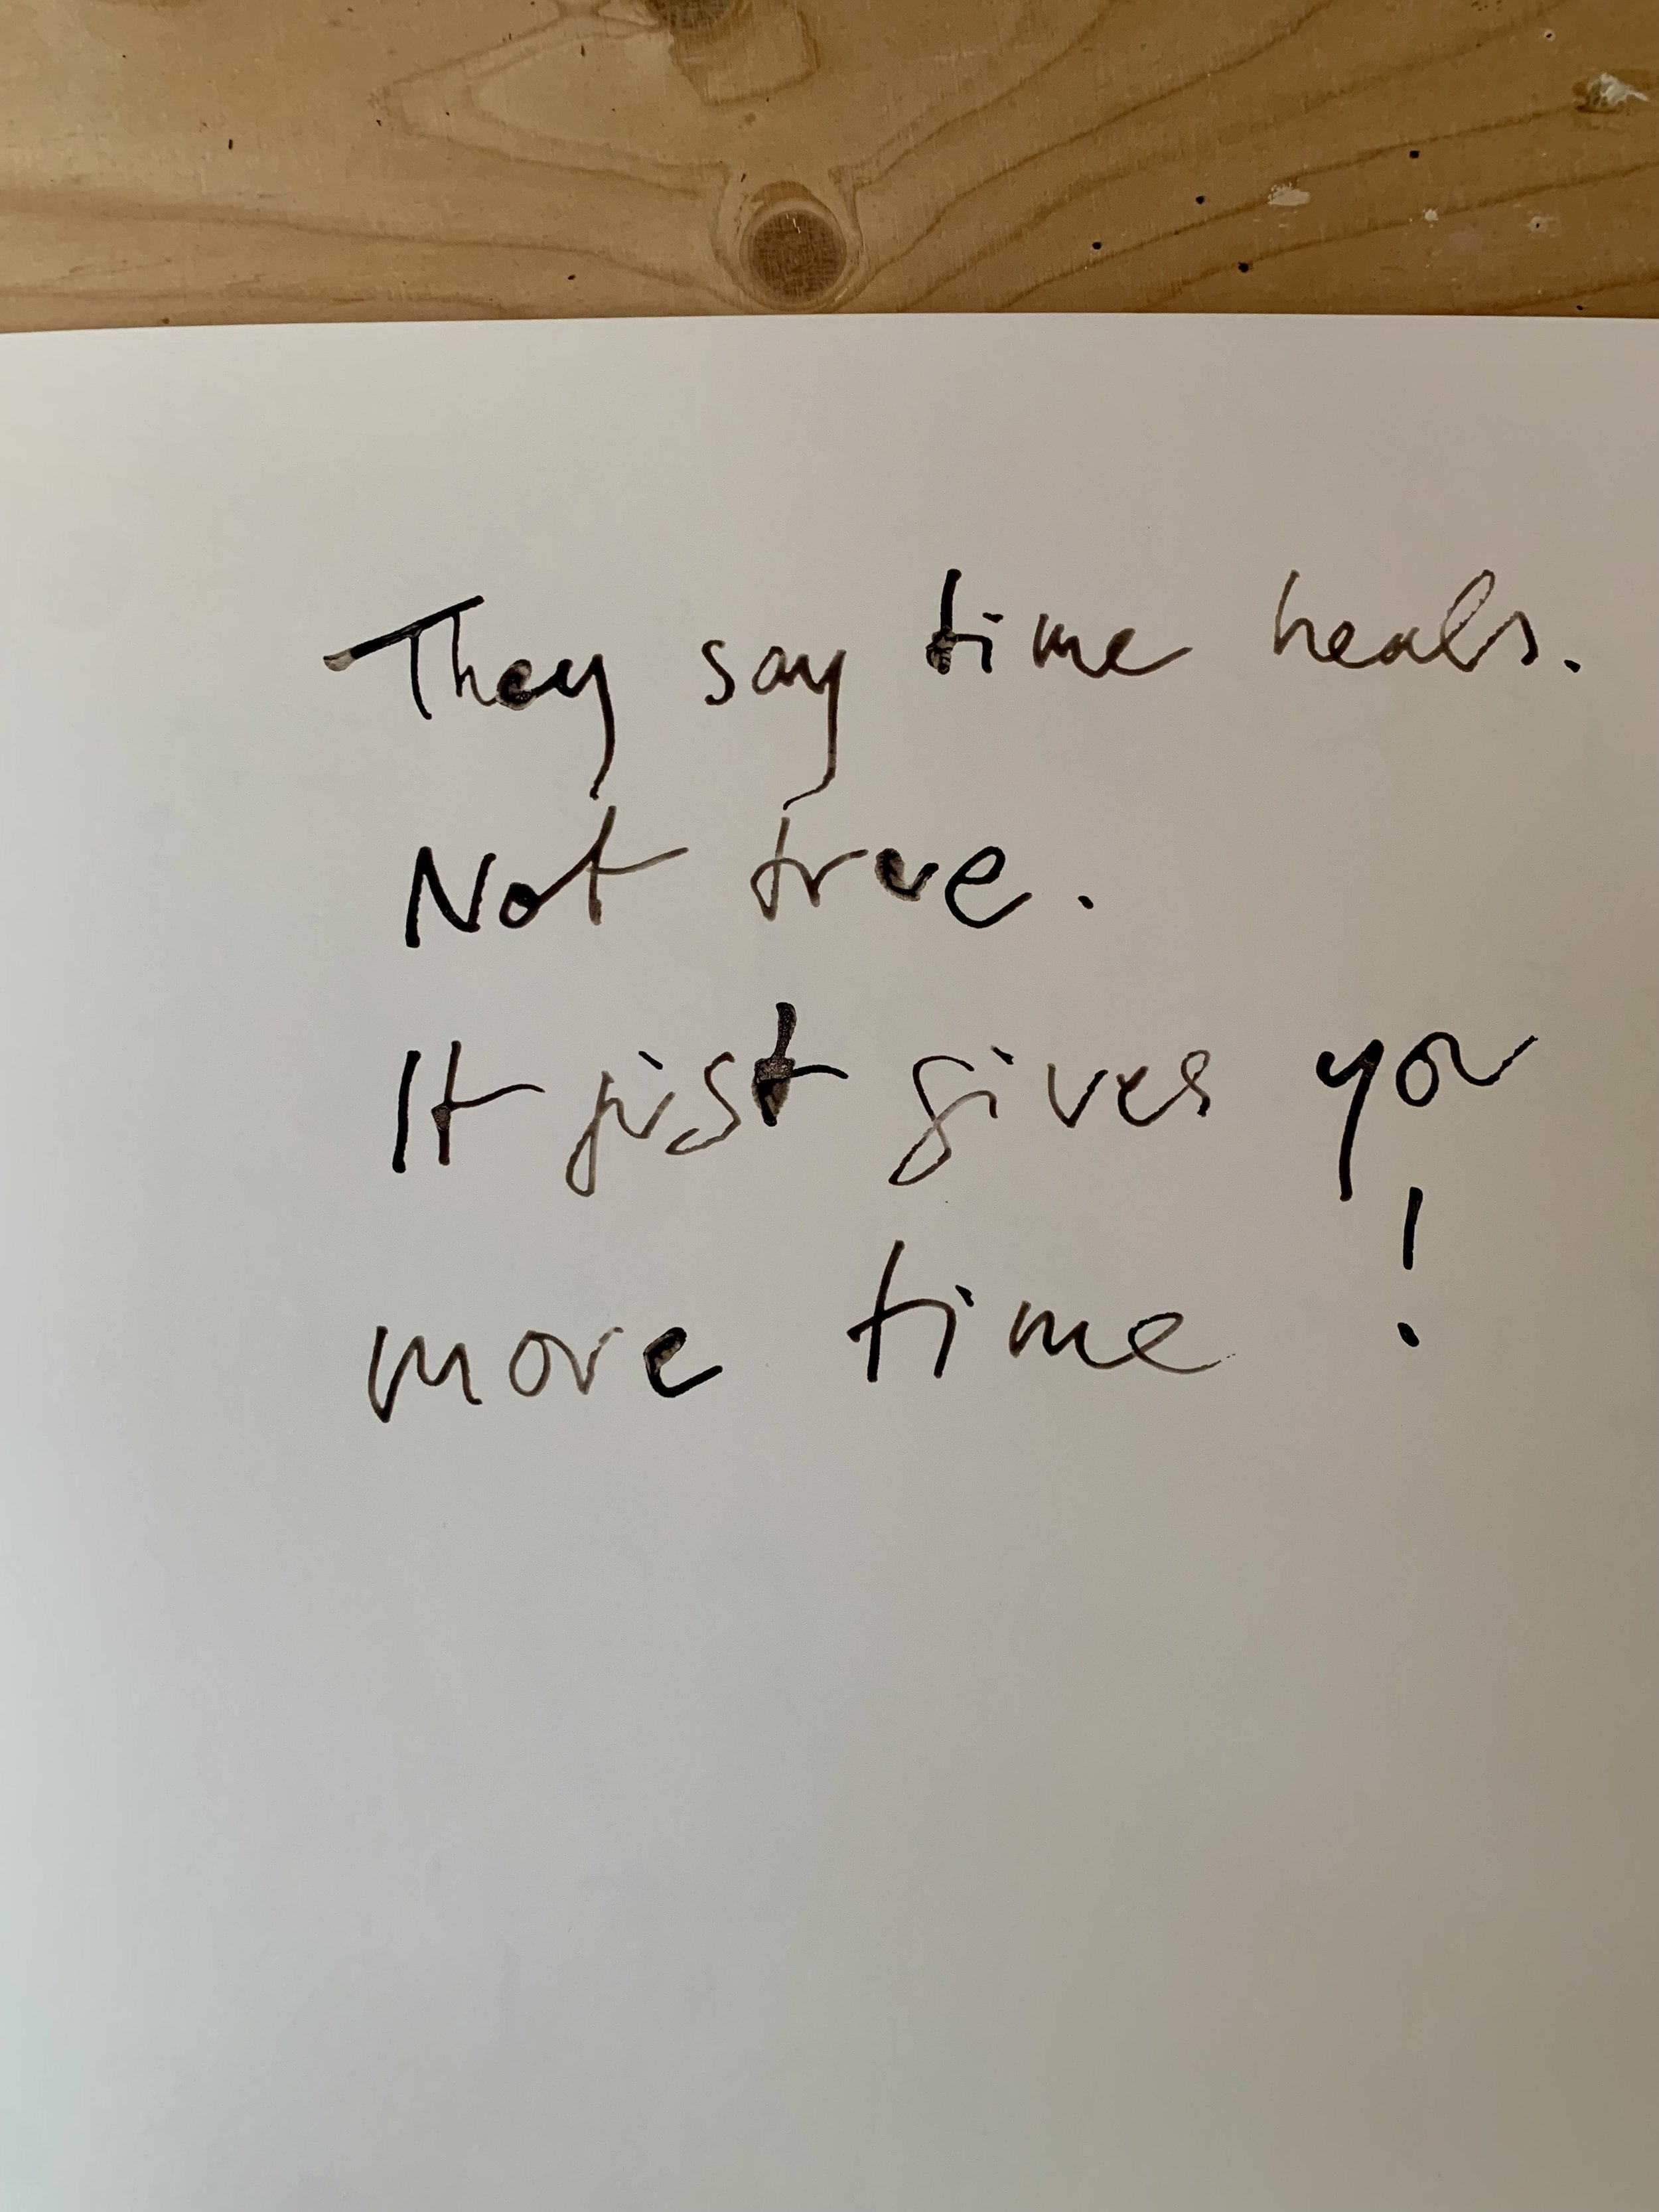 They say time heals.
Not true.
It just gives you
more time!